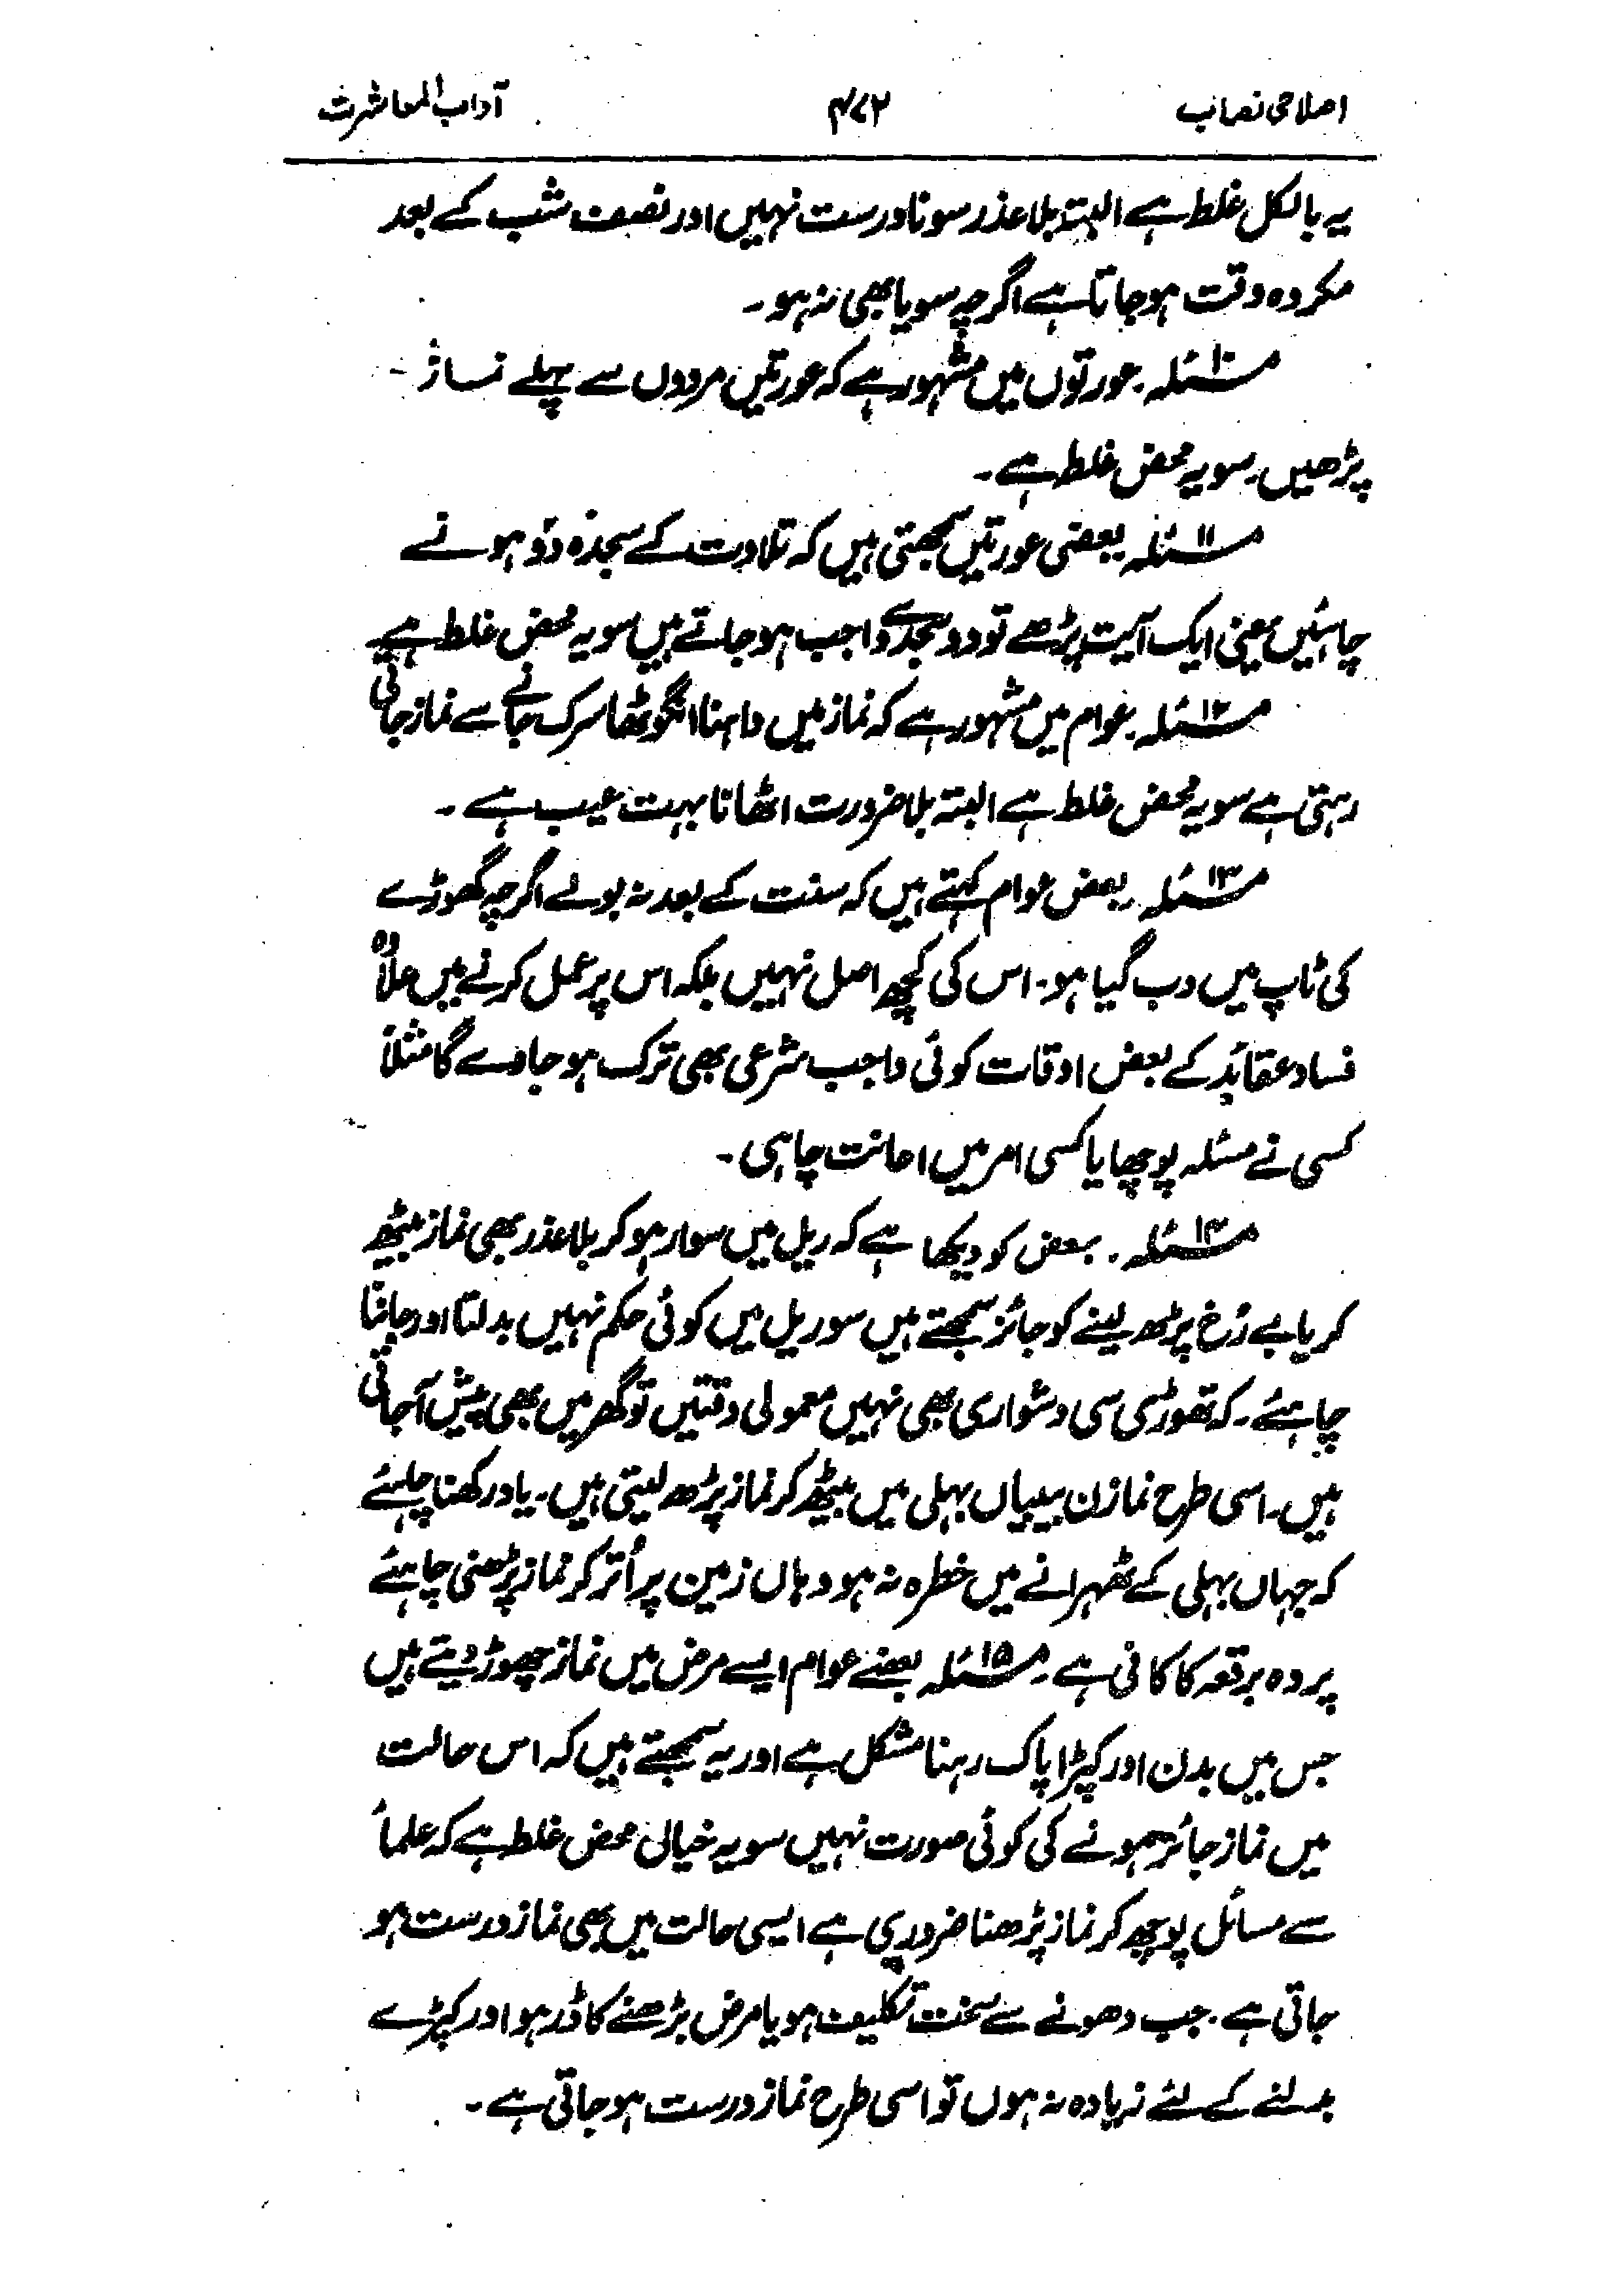 اصلاحی نصاب ۴۷۲ آداب المعاشرت
یہ بالکل غلط ہے البتہ بلا عذر سونا درست نہیں اور نصف شب کے بعد
مکروہ وقت ہو جاتا ہے اگرچہ سویا بھی نہ ہو۔
مسئلہ ۱۰ عورتوں میں مشہور ہے کہ عورتیں مردوں سے پہلے نماز
پڑھیں۔ سو یہ محض غلط ہے۔
مسئلہ ۱۱ بعضی عورتیں سمجھتی ہیں کہ تلاوت کے سجدہ دو ہونے
چاہئیں یعنی ایک آیت پڑھے تو دو سجدے واجب ہو جاتے ہیں سو یہ محض غلط ہے
مسئلہ ۱۲ عوام میں مشہور ہے کہ نماز میں داہنا انگوٹھا سرک جانے سے نماز جاتی
رہتی ہے سو یہ محض غلط ہے البتہ بلا ضرورت اٹھانا بہت عیب ہے۔
مسئلہ ۱۳ بعض عوام کہتے ہیں کہ سنت کے بعد نہ بولے اگرچہ گھوڑے
کی ٹاپ میں دب گیا ہو۔ اس کی کچھ اصل نہیں بلکہ اس پر عمل کرنے میں علاوہ
فساد عقائد کے بعض اوقات کوئی واجب شرعی بھی ترک ہو جاوے گا مثلاً
کسی نے مسئلہ پوچھا یا کسی امر میں اعانت چاہی۔
مسئلہ ۱۴۔ بعض کو دیکھا ہے کہ ریل میں سوار ہو کر بلا عذر بھی نماز بیٹھ
کر یا بے رُخ پڑھ لینے کو جائز سمجھتے ہیں سو ریل میں کوئی حکم نہیں بدلتا اور جاننا
چاہئے۔ کہ تھوڑی سی دشواری بھی نہیں معمولی دقتیں تو گھر میں بھی پیش آجاتی
ہیں۔ اسی طرح نمازن بیبیاں بہلی میں بیٹھ کر نماز پڑھ لیتی ہیں۔ یاد رکھنا چاہئے
کہ جہاں بہلی کے ٹھہرانے میں خطرہ نہ ہو وہاں زمین پر اُتر کر نماز پڑھنی چاہئے
پردہ برقعہ کا کافی ہے۔ مسئلہ ۱۵ بعضے عوام ایسے مرض میں نماز چھوڑ دیتے ہیں
جس میں بدن اور کپڑا پاک رہنا مشکل ہے اور یہ سمجھتے ہیں کہ اس حالت
میں نماز جائز ہونے کی کوئی صورت نہیں سو یہ خیالی محض غلط ہے کہ علمأ
سے مسائل پوچھ کر نماز پڑھنا ضروری ہے ایسی حالت میں بھی نماز درست ہو
جاتی ہے۔ جب دھونے سے سخت تکلیف ہو یا مرض بڑھنے کا ڈر ہو اور کپڑے
بدلنے کے لئے زیادہ نہ ہوں تو اسی طرح نماز درست ہو جاتی ہے۔